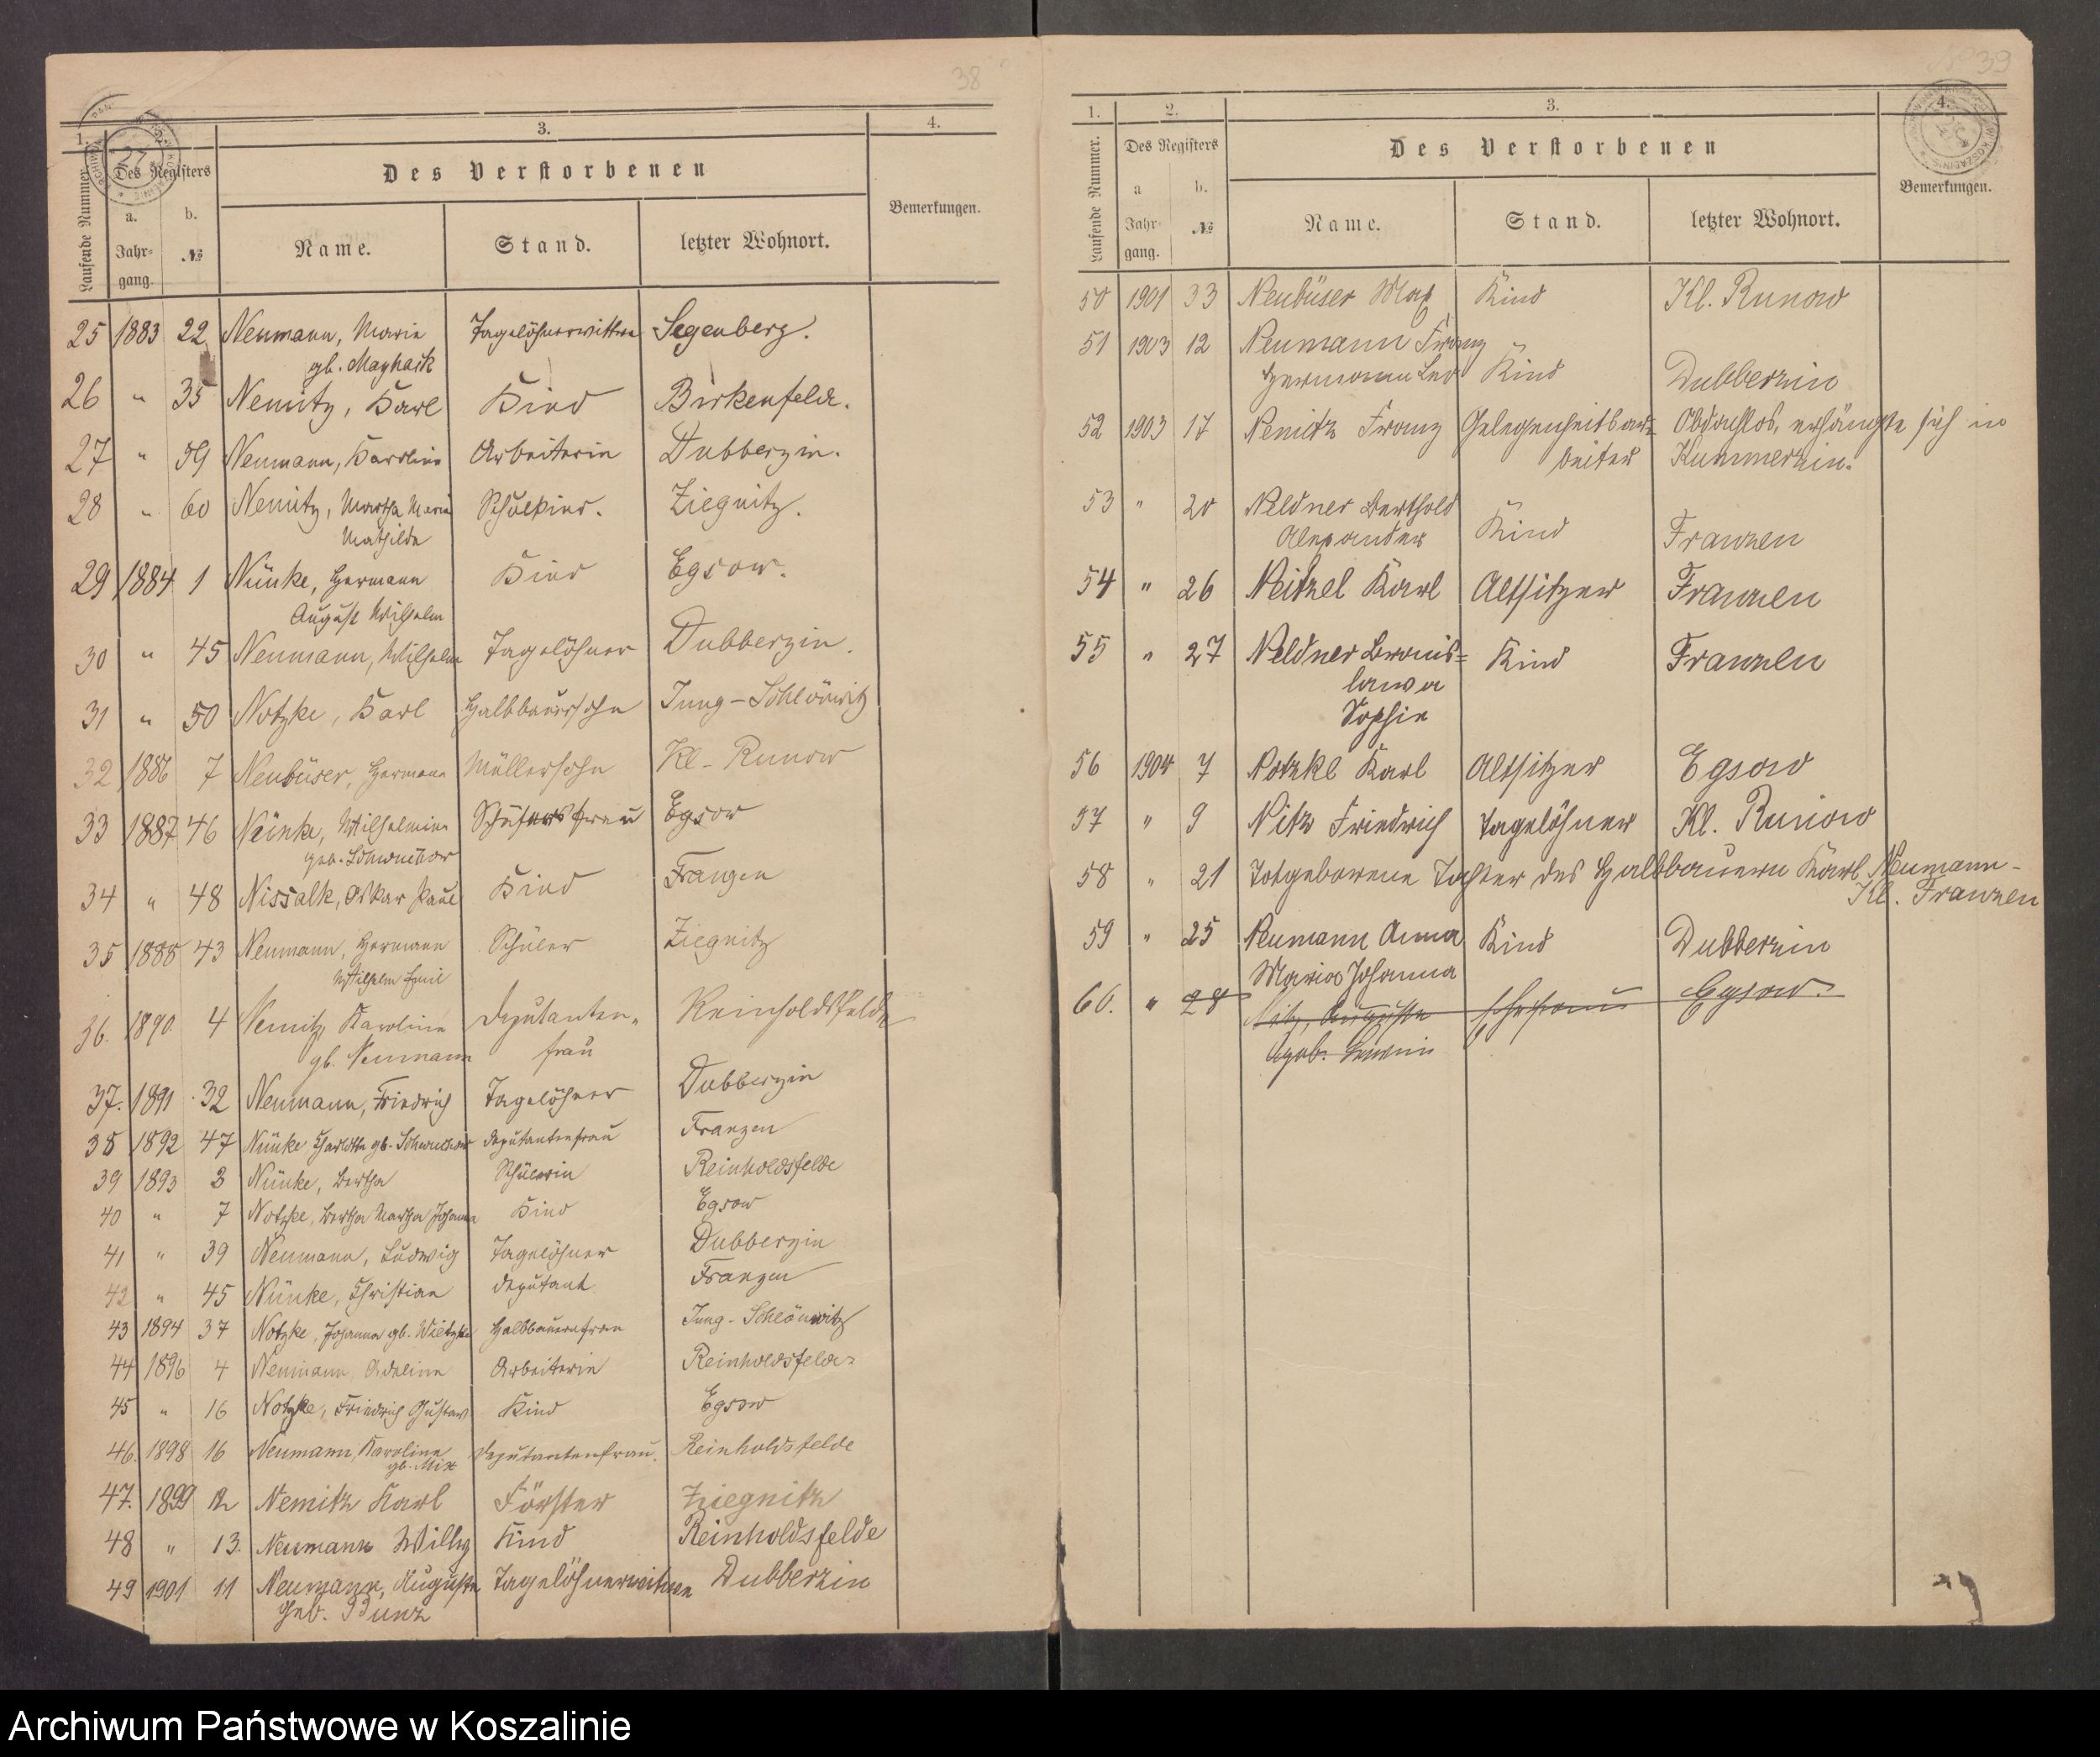 38
1. 3. 4.
Laufende Nummer. Des Registers Des Verstorbenen Bemerkungen.
a. b.
Jahr-gang. № Name. Stand. letzter Wohnort.
25 1883 22 Neumann, Maria Tagelöhnerwittwe Segenberg.
gb.
26 " 35 Nemitz, Karl Kind Birkenfelde.
27 " 59 Neumann, Karoline Arbeiterin Dubberzin.
28 " 60 Nemitz, Martha Maria Schulkind. Ziegnitz.
Mathilde
29 1884 1 Nünke, Hermann Kind Egsow.
August Wilhelm
30 " 45 Neumann, Wilhelm Tagelöhner Dubberzin.
31 " 50 Notzke, Karl Halbbauersohn Jung-Schlönwitz
32 1886 7 Neubüser, Hermann Müllersohn Kl. Runow
33 1887 46 Nünke, Wilhelmine Egsow
geb.
34 " 48 Nissalk, Oskar Paul Kind Franzen
35 1888 43 Neumann, Hermann Schüler Ziegnitz
Wilhelm Emil
36. 1890. 4 Nemitz Karoline Deputanten- Reinholdsfelde
gb. Neumann frau
37. 1891 32 Neumann, Friedrich Tagelöhner Dubberzin
38 1892 47 Nünke Charlotte gb. Deputantenfrau Franzen
39 1893 3 Nünke, Bertha Schülerin Reinholdsfelde
40 " 7 Notzke, Bertha Martha Johanna Kind Egsow
41 " 39 Neumann, Ludwig Tagelöhner Dubberzin
42 " 45 Nünke, Christian Deputant Franzen
43 1894 37 Notzke, Johanna gb. Wietzke Halbbauernfrau Jung-Schlönwitz
44 1896 4 Neumann, Adeline Arbeiterin Reinholdsfelde
45 " 16 Notzke, Friedrich Gustav Kind Egsow
46. 1898 16 Neumann, Karoline Deputantenfrau. Reinholdsfelde
gb. Mix
47. 1899 12 Nemitz Karl Förster Ziegnitz
48 " 13. Neumann Willy Kind Reinholdsfelde
49 1901 11 Neumann, Auguste Tagelöhnerwitwe Dubberzin
Geb. Bunz
39
1. 2. 3. 4.
Laufende Nummer. Des Registers Des Verstorbenen Bemerkungen.
a b.
Jahr-gang. № Name. Stand. letzter Wohnort.
50 1901 33 Neubüser Max Kind Kl. Runow
51 1903 12 Neumann Franz
Hermann Leo Kind Dubberzin
52 1903 17 Nemitz Franz Gelegenheitsar- Obdachlos, erhängte sich in
beiter Kummerzin.
53 " 20 Neldner Berthold
Alexander Kind Franzen
54 " 26 Neitzel Karl Altsitzer Franzen
55 " 27 Neldner Bronis= Kind Franzen
lawa
Sophie
56 1904 7 Notzke Karl Altsitzer Egsow
57 " 9 Nitz Friedrich Tagelöhner Kl. Runow
58 " 21 Totgeborene Tochter des Halbbauern Karl Neumann-
Kl. Franzen
59 " 25 Neumann Anna Kind Dubberzin
Maria Johanna
60. " 28 Nitz, Auguste Ehefrau Egsow.
geb.
Archiwum Państwowe w Koszalinie